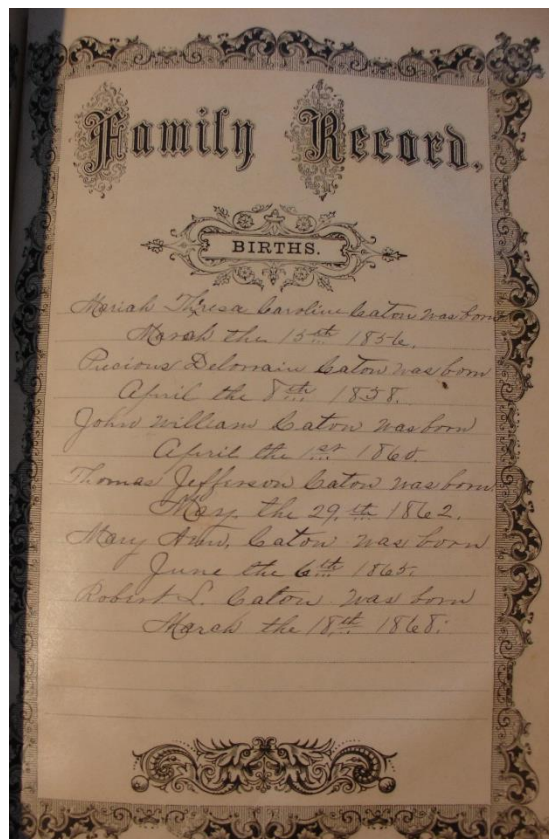 Family Record.
BIRTHS.
Mariah Thresa Caroline Caton was born
March the 15th 1856.
Precious Delorrain Caton was born
April the 8th 1858.
John William Caton was born
April the 1st 1860.
Thomas Jefferson Caton was born.
May, the 29,th 1862.
Mary Ann, Caton was born
June the 6th 1865.
Robert L. Caton was born
March the 18th 1868.